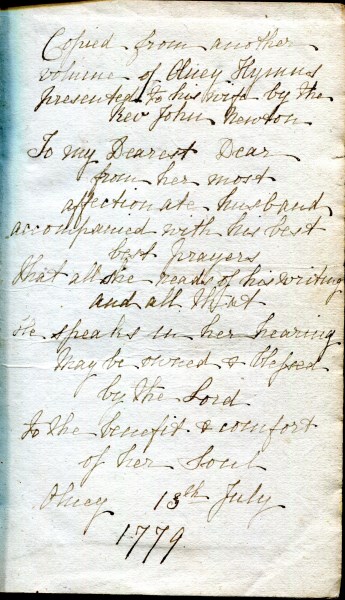 Copied from another
volume of Olney Hymns
presented to his wife by the
Rev John Newton
To my Dearest Dear
from her most
affectionate husband
accompanied with his best
best prayers
That all she reads of his writing
and all that
He speaks in her hearing
May be owned & blessed
by the Lord
To the benefit & comfort
of her Soul
Olney 13th July
1779